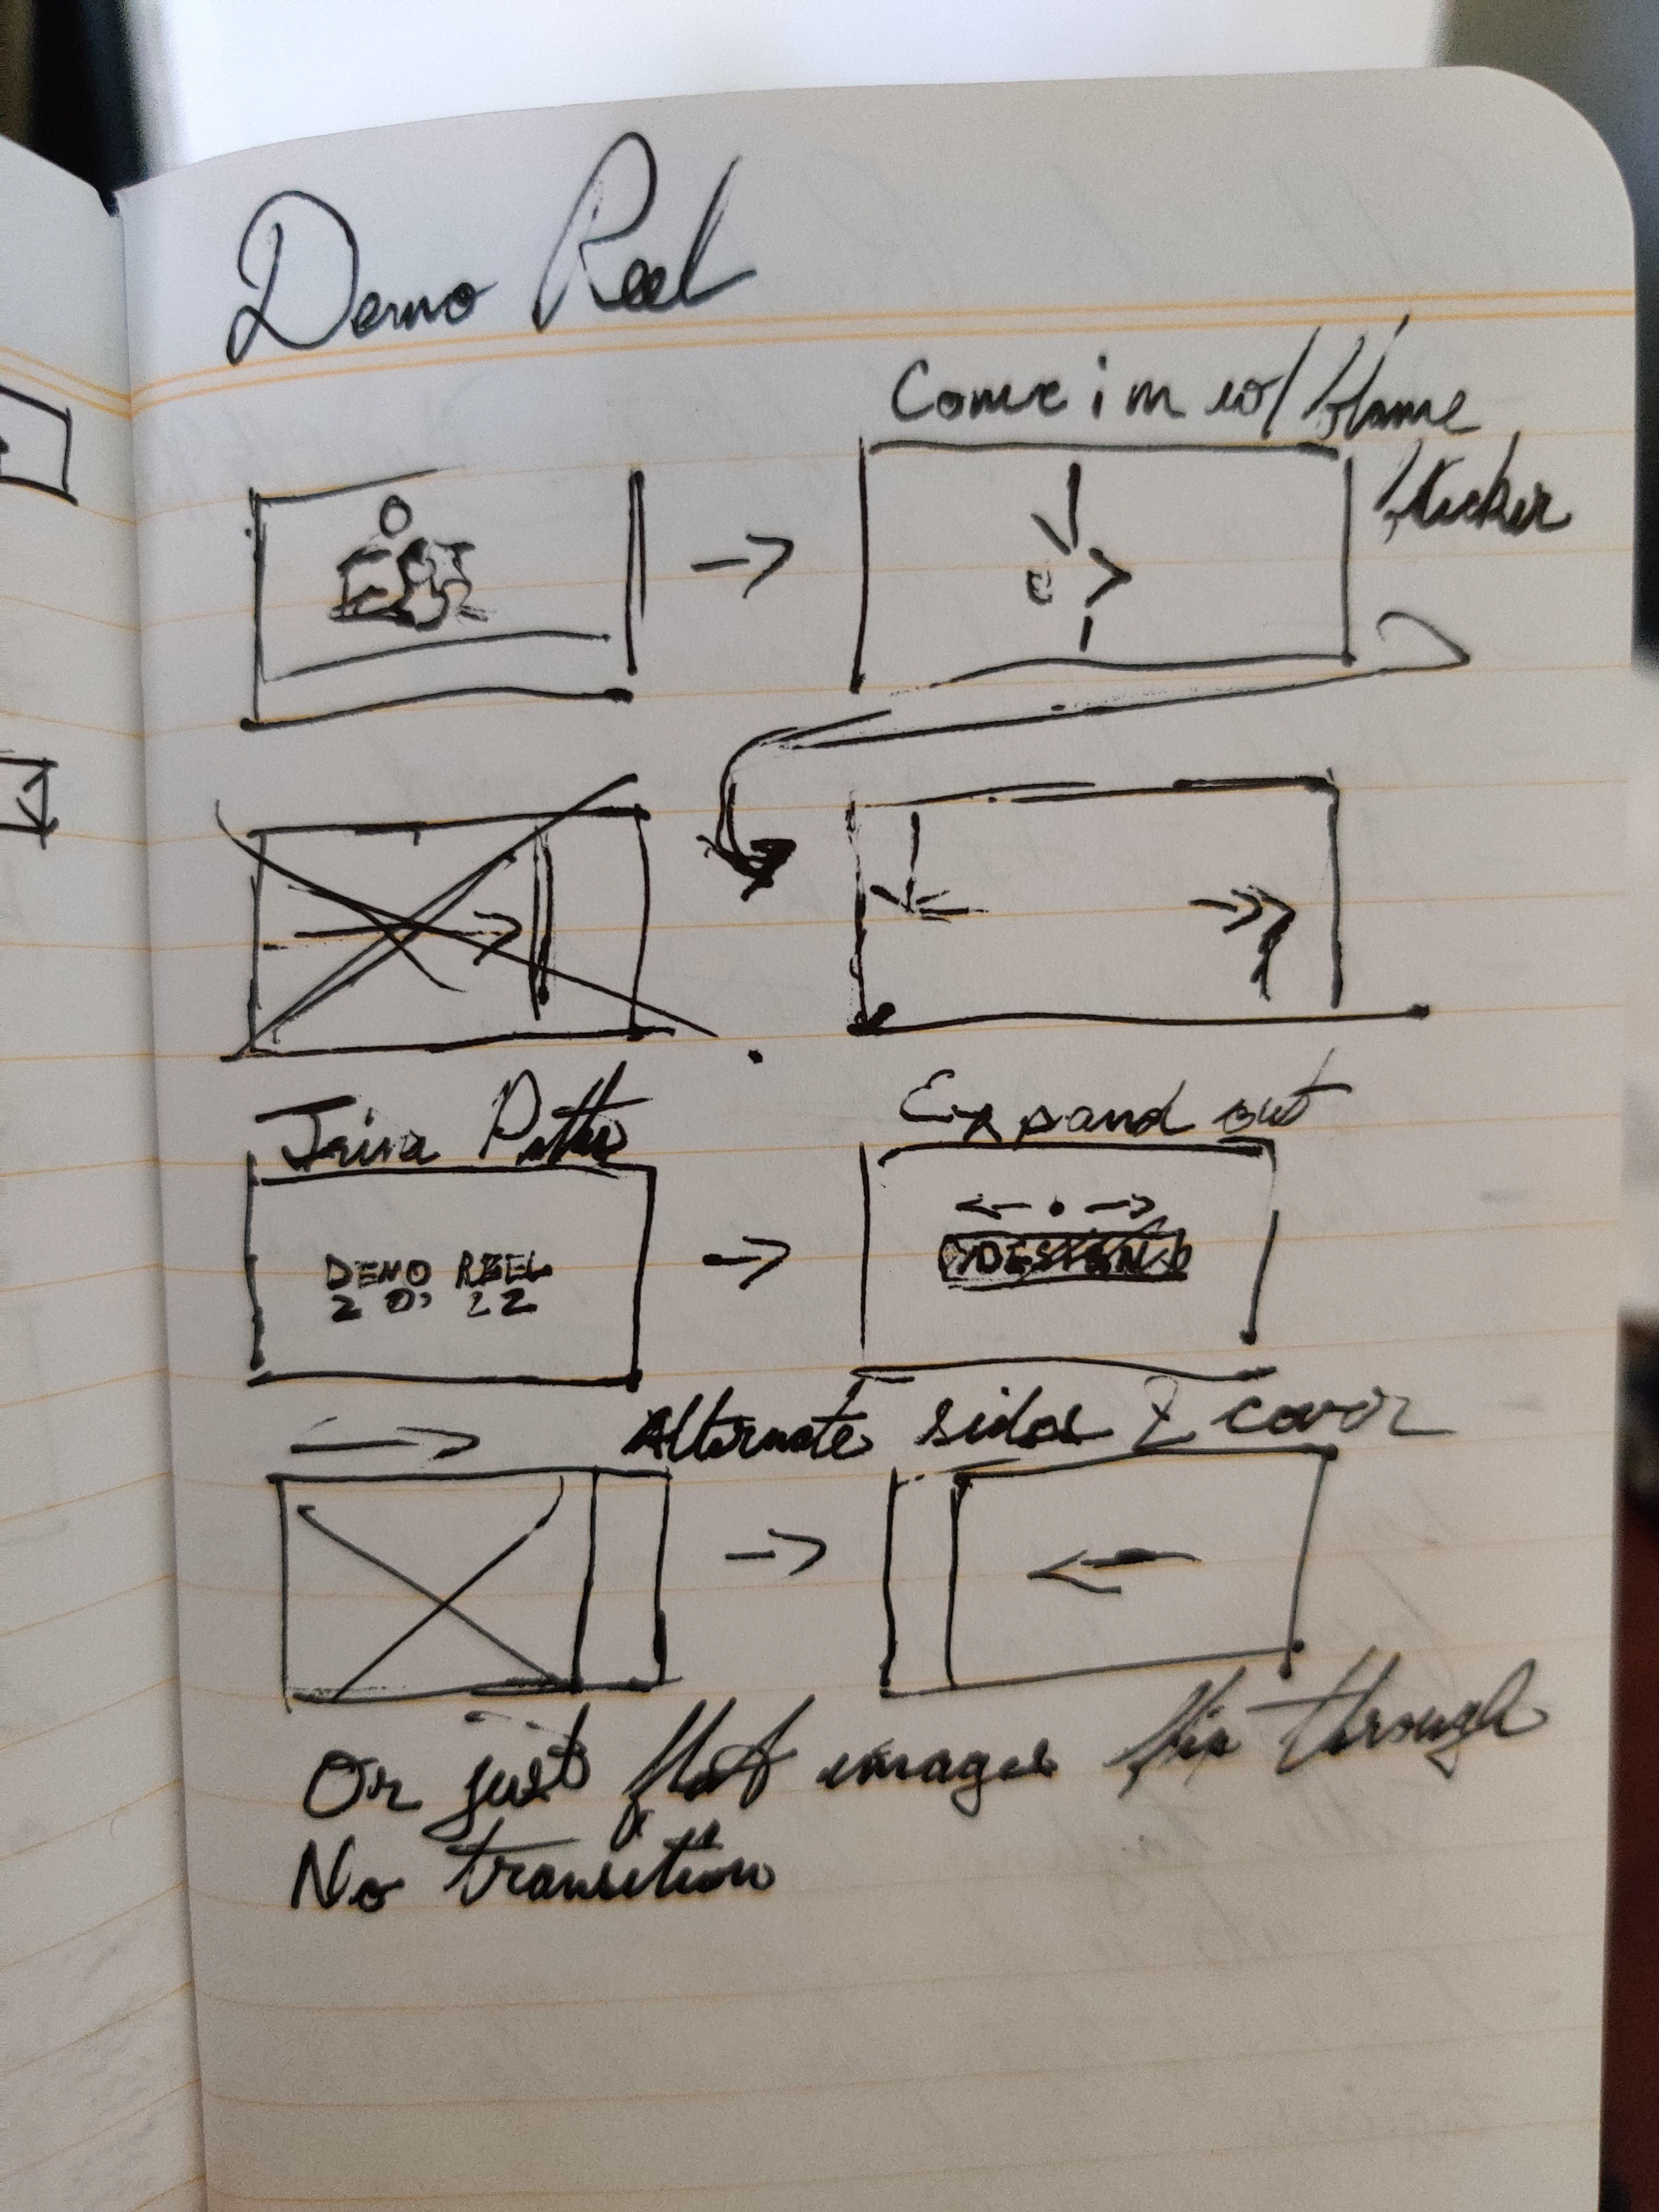 Demo Reel
Come in w/
Expand out
DEMO REEL
20, 22
DESIGN
Alternate sides & cover
Or just flat images flip through
No transition